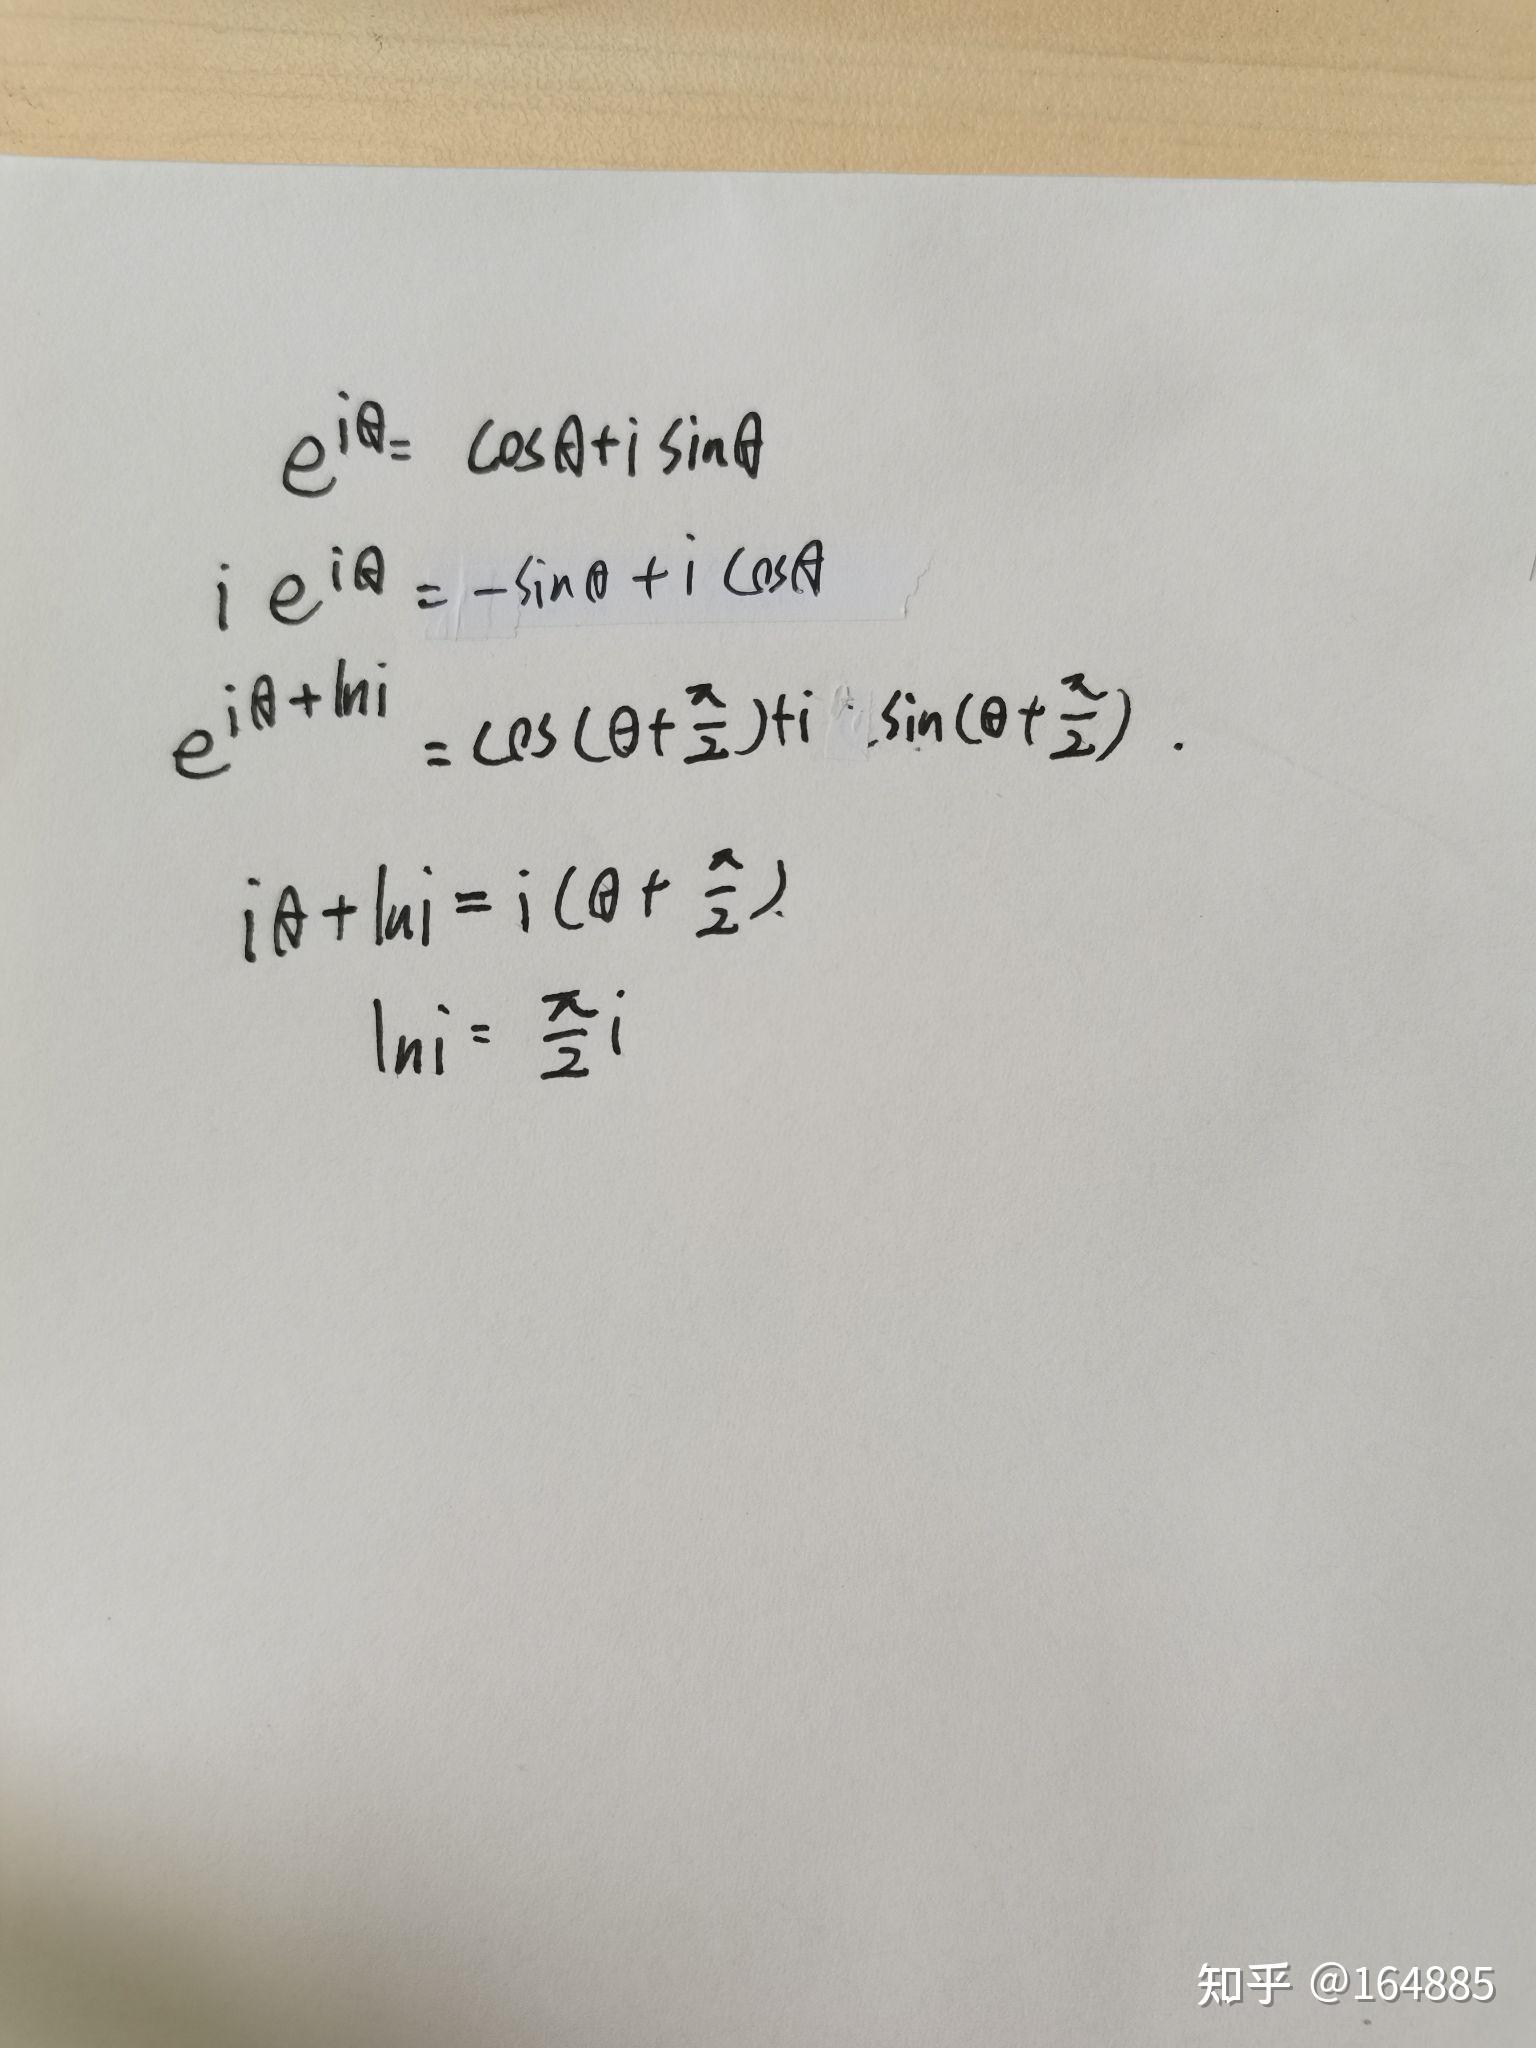 e^{iθ} = cosθ + i sinθ
i e^{iθ} = -sinθ + i cosθ
e^{iθ + ln i} = cos(θ + π/2) + i sin(θ + π/2).
iθ + ln i = i(θ + π/2).
ln i = π/2 i
知乎 @164885